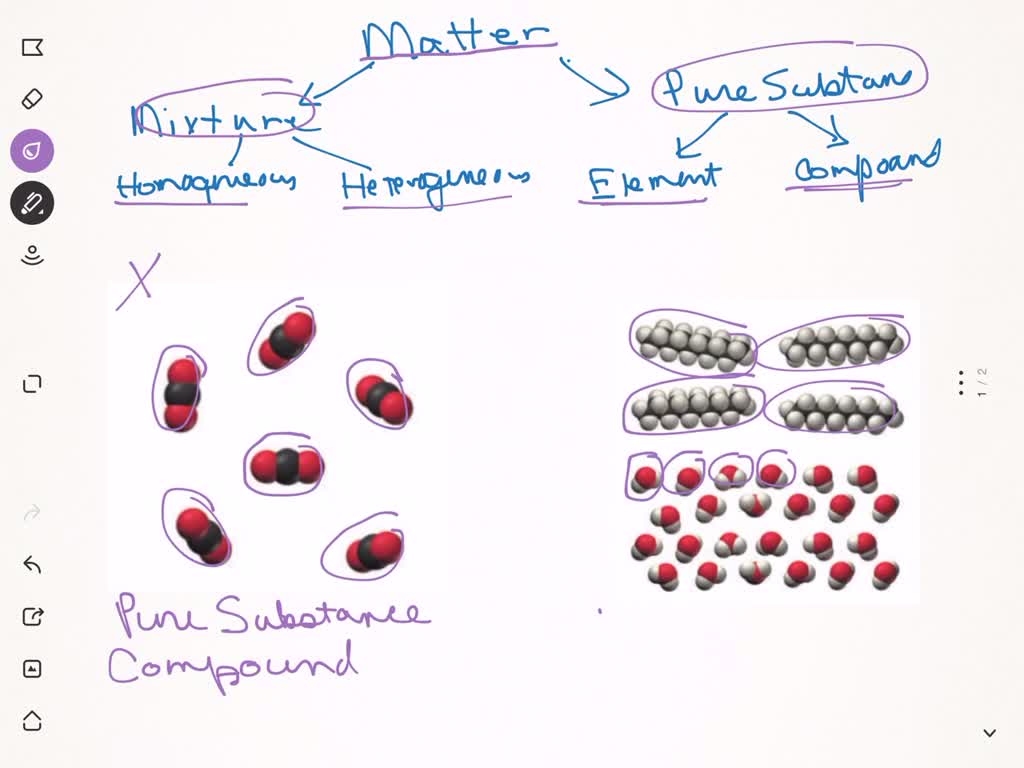 Matter
Mixture
Pure Substans
Homogneous
Heterogineous
Element
Compound
X
Pure Substance
Compound
1 / 2